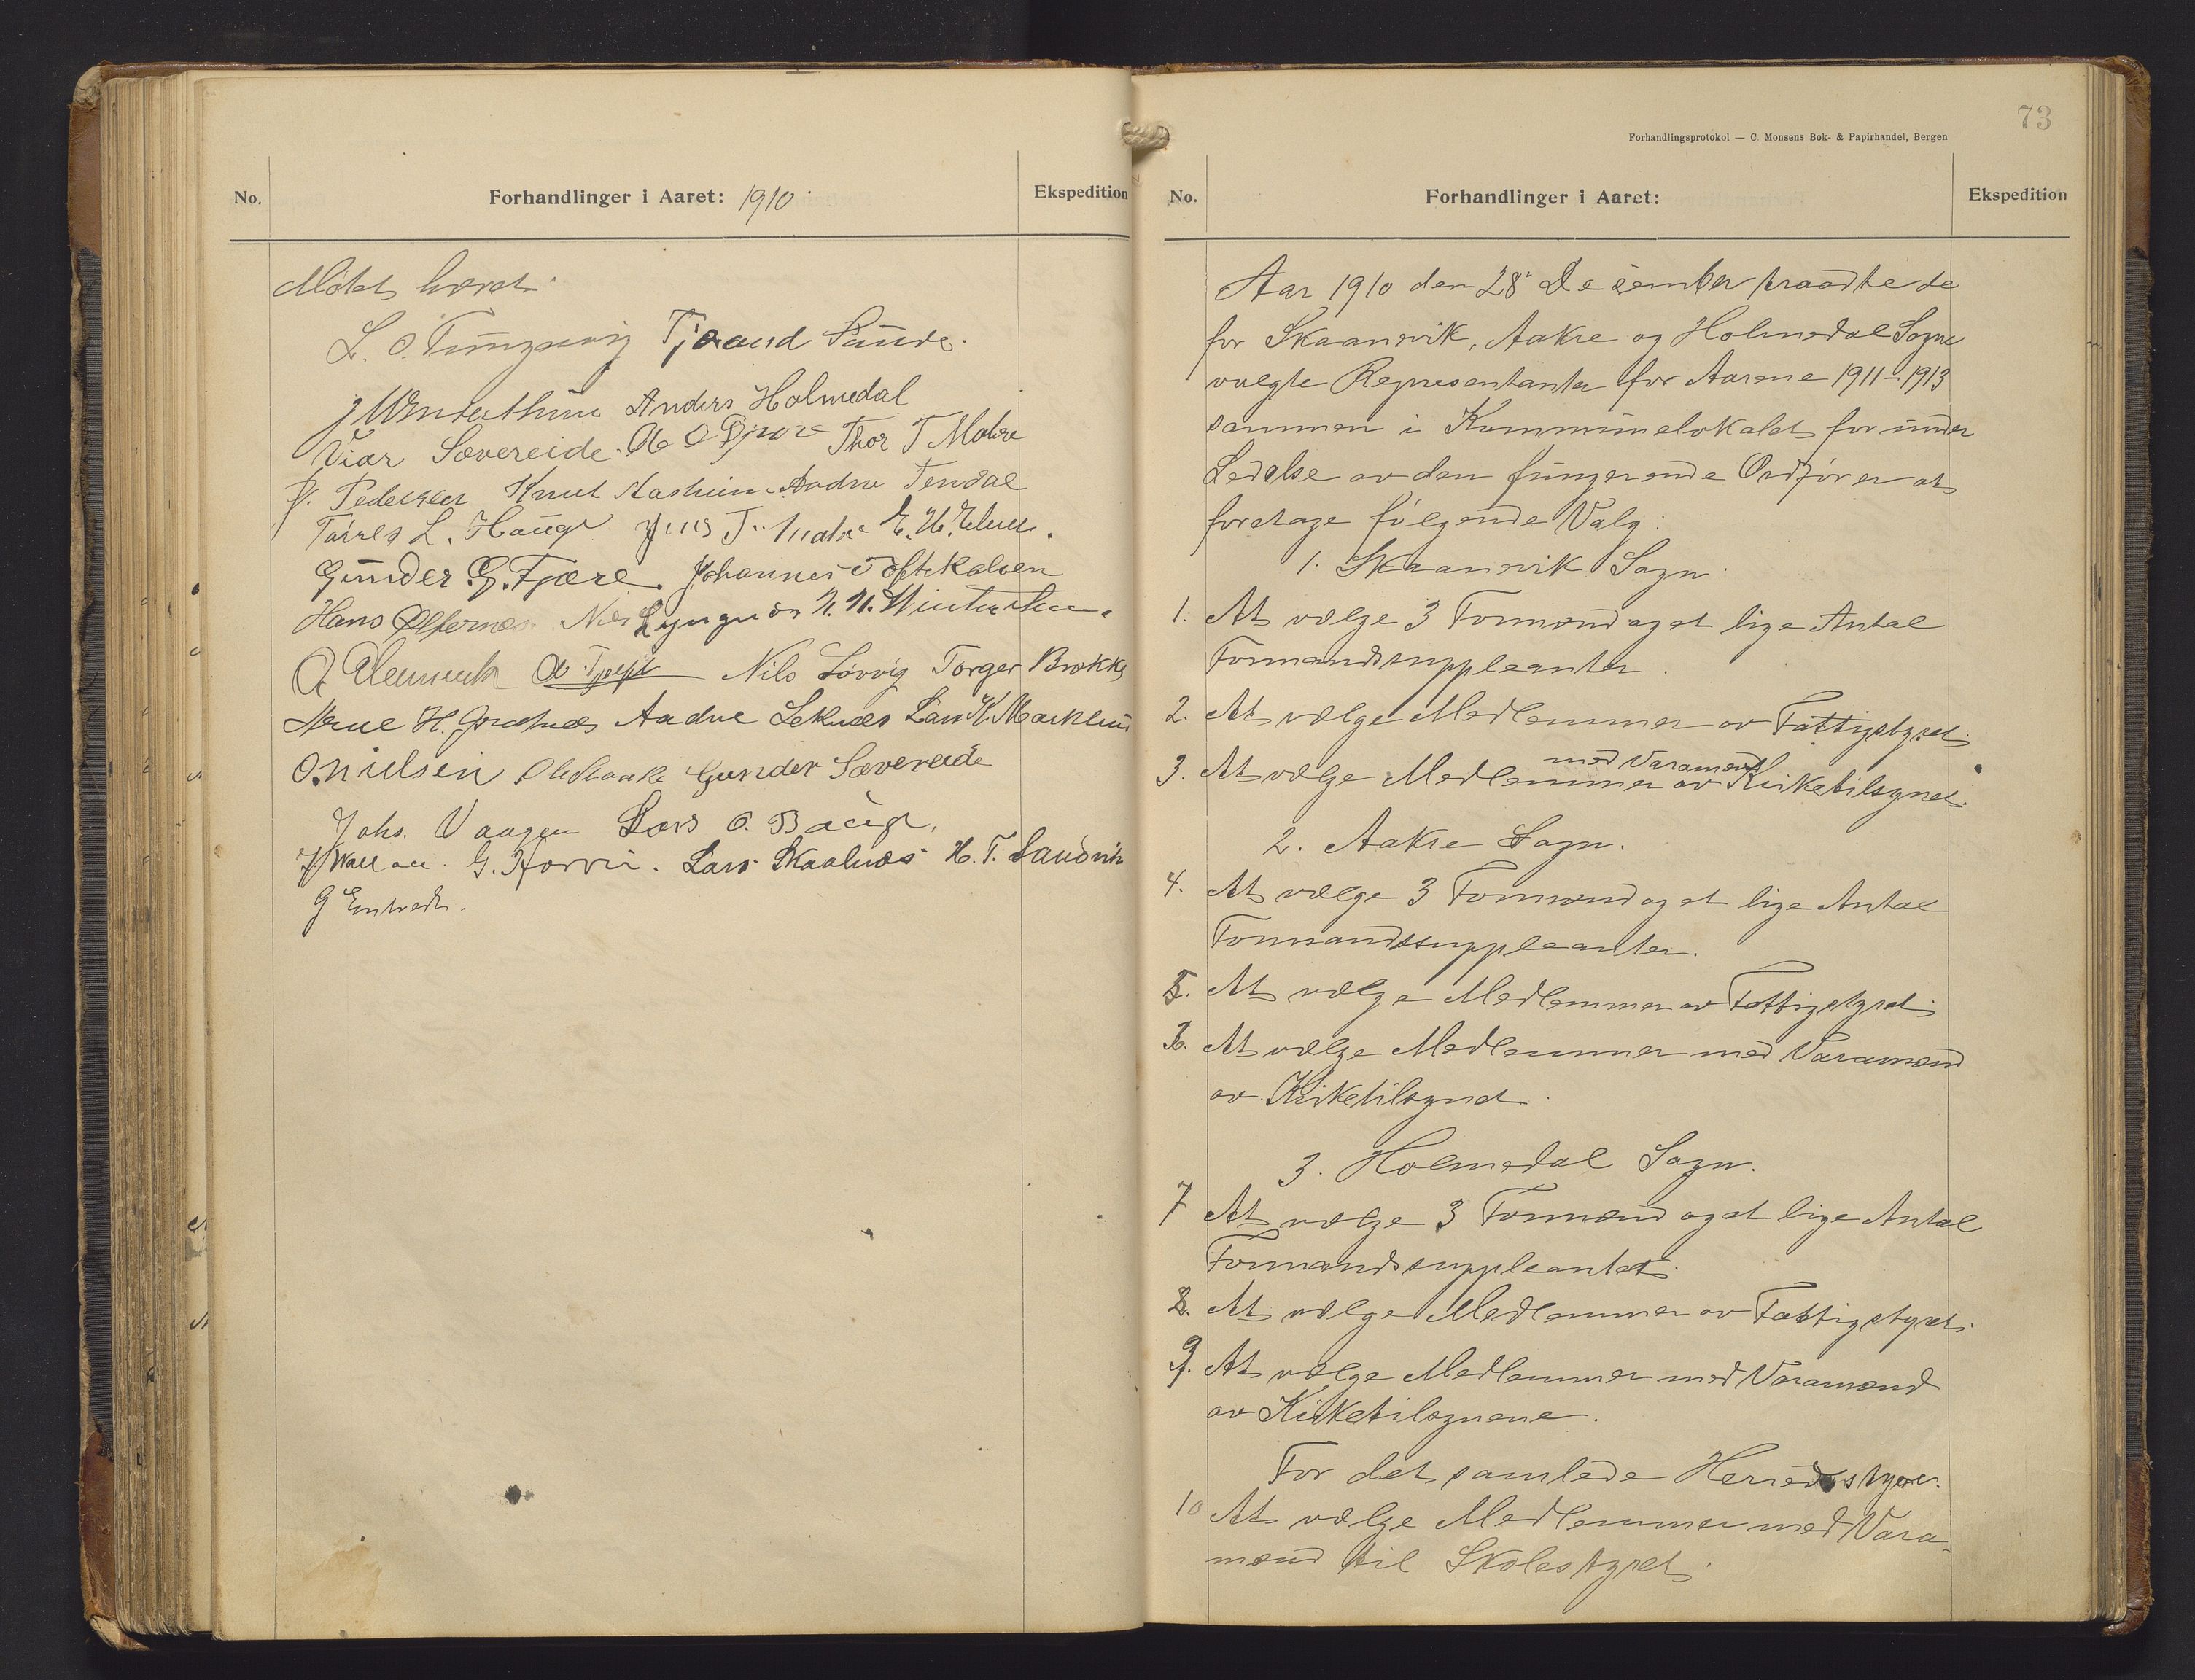 No.
Forhandlinger i Aaret: 1910
Ekspedition
Mötet hævet.
L. O. Tungesvig Tjerand Sunde.
J Winterthun Anders Holmedal
Viar Sævereide. Thor T Matre
P. Pedersen Knut Aasheim Andru Tendal
Tørres L. Hauge Jens T. Matre
Gunder G. Fjære. Johannes Toftekalven
Hans Ølfernæs. Nils Lyngnæs
Nils Løvvig Torger Brekke
Arne H. Aadne Leknes Lars K. Markhus
O. Nielsen Gunder Sævereide
Johs. Vaagen Lars O. Bauge.
Lars Skaalnæs H. T. Sandvik
G
73
Forhandlingsprotokol — C. Monsens Bok- & Papirhandel, Bergen
No.
Forhandlinger i Aaret:
Ekspedition
Aar 1910 den 28' Desember traadte de
for Skaanevik, Aakre og Holmedal Sogne
valgte Representanter for Aarene 1911-1913
sammen i Kommunelokalet for under
Ledelse av den fungerende Ordförer at
foretage fölgende Valg:
1. Skaanevik Sogn.
1. At vælge 3 Formænd og et lige Antal
Formandssuppleanter.
2. At vælge Medlemmer av Fattigstyret.
3. At vælge Medlemmer med Varamænd av Kirketilsynet.
2. Aakre Sogn.
4. At vælge 3 Formænd og et lige Antal
Formandssuppleanter.
5. At vælge Medlemmer av Fattigstyret.
6. At vælge Medlemmer med Varamænd
av Kirketilsynet.
3. Holmedal Sogn.
7 At vælge 3 Formænd og et lige Antal
Formandssuppleanter.
8. At vælge Medlemmer av Fattigstyret.
9. At vælge Medlemmer med Varamænd
av Kirketilsynene.
For det samlede Herredsstyre.
10 At vælge Medlemmer med Vara-
mænd til Skolestyret.